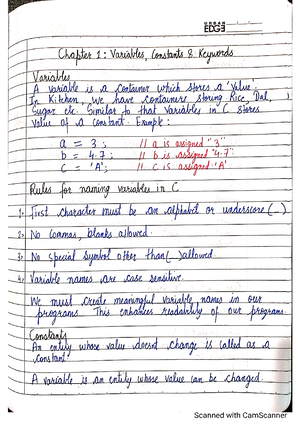 EDGE
Chapter 1: Variables, Constants & Keywords
Variables
A variable is a container which stores a 'Value'.
In Kitchen, we have containers storing Rice, Dal,
Sugar etc. Similar to that Variables in C stores
Value of a constant. Example:
a = 3; // a is assigned "3"
b = 4.7; // b is assigned "4.7"
c = 'A'; // c is assigned 'A'
Rules for naming variables in C
1. First character must be an alphabet or underscore (_)
2. No commas, blanks allowed.
3. No special symbol other than (_) allowed.
4. Variable names are case sensitive.
We must create meaningful variable names in our
programs. This enhances readability of our programs.
Constants
An entity whose value doesnt change is called as a
constant.
A variable is an entity whose value can be changed.
Scanned with CamScanner